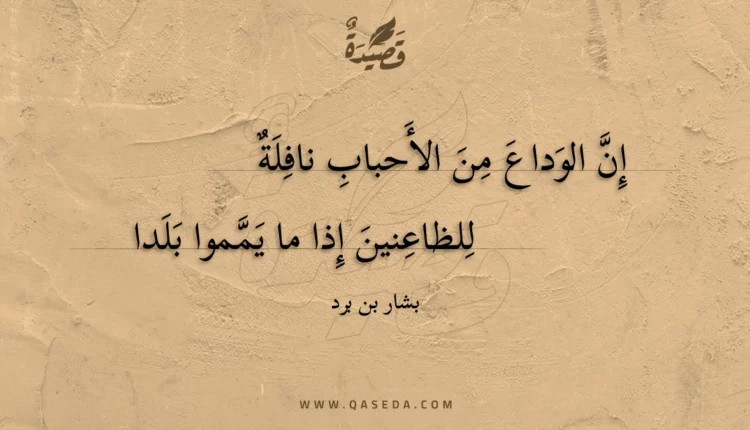 قَصِيدَةٌ
إِنَّ الوَداعَ مِنَ الأَحبابِ نافِلَةٌ
لِلظاعِنينَ إِذا ما يَمَّموا بَلَدا
بشار بن برد
WWW.QASEDA.COM